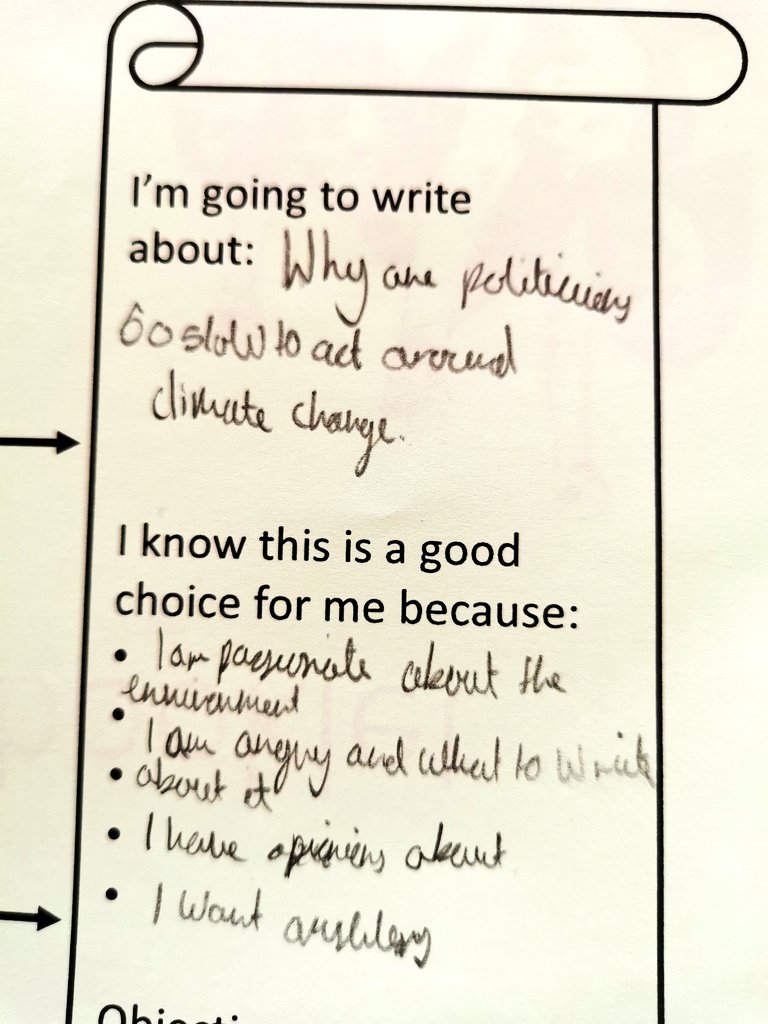 I'm going to write
about: Why are politicians
so slow to act around
climate change.
I know this is a good
choice for me because:
• I am passionate about the
environment
• I am angry and what to write
• about it
• I have opinions about
• I want